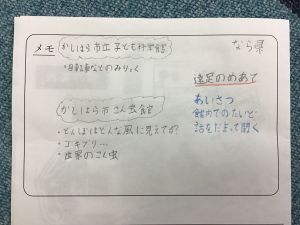 メモ
かしはら市立 子ども科学館
・自転車などのみりょく
かしはら市 こん虫館
・とんぼはどんな風に見えてる?
・ゴキブリ…
・世界のこん虫
なら県
遠足のめあて
あいさつ
館内でのたいど
話をだまって聞く